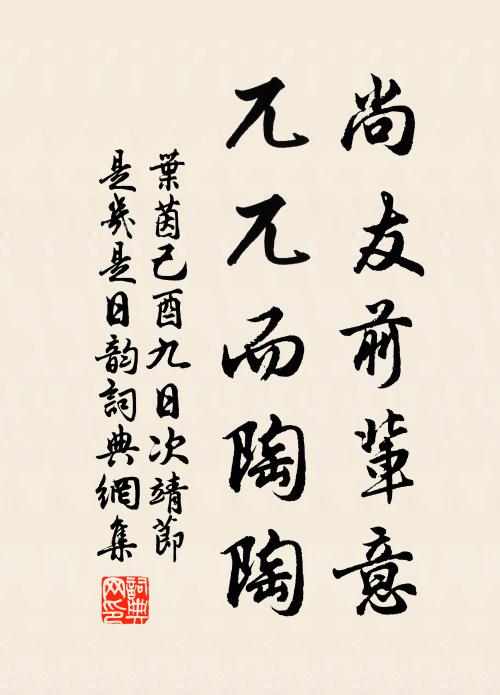 尚友前輩意
兀兀而陶陶
葉茵己酉九日次靖節
是歲是日韵詞典網集
詞典網印